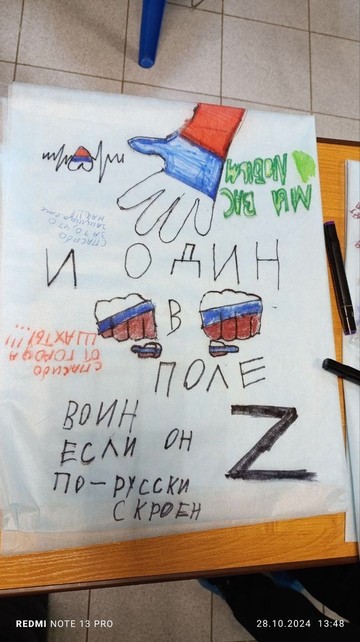 МЫ ВАС
ЛЮБИМ
СПАСИБО
ЗА ТО, ЧТО
ЗАЩИЩАЕТЕ
НАС
И ОДИН
В
ПОЛЕ
СПАСИБО
ОТ ГОРОДА
ШАХТЫ!!!
ВОИН
ЕСЛИ ОН
ПО-РУССКИ
СКРОЕН
Z
REDMI NOTE 13 PRO
28.10.2024 13:48